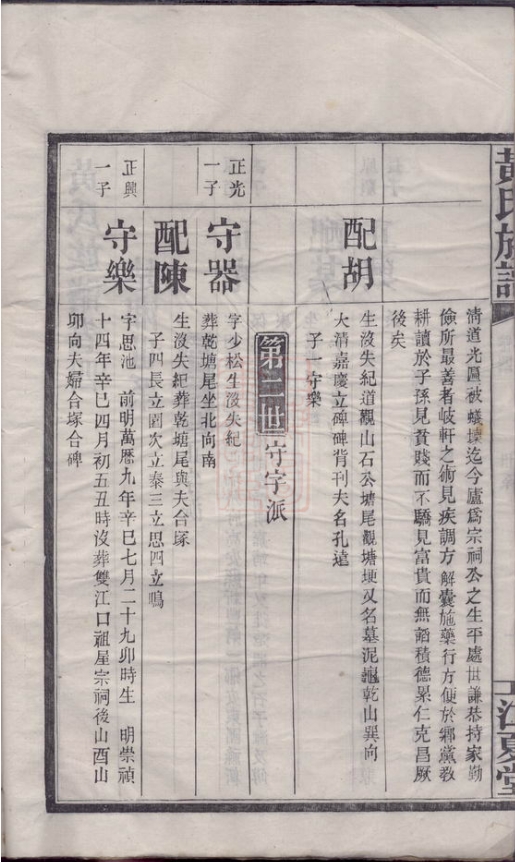 黃氏族譜
江夏堂
清道光匾被蟻壞迄今廬爲宗祠公之生平處世謙恭持家勤
儉所最善者岐軒之術見疾調方解囊施藥行方便於鄉黨教
耕讀於子孫見貧賤而不驕見富貴而無諂積德累仁克昌厥
後矣
配胡
生沒失紀道觀山石公塘尾觀塘埂又名墓泥龜乾山巽向
大淸嘉慶立碑碑背刊夫名孔遠
子一守樂
第二世
守字派
正光
一子
守器
字少松生沒失紀
葬乾塘尾坐北向南
配陳
生沒失紀葬乾塘尾與夫合塚
子四長立圍次立泰三立思四立鳴
正興
一子
守樂
字思池 前明萬厯九年辛巳七月二十九卯時生 明崇禎
十四年辛巳四月初五丑時沒葬雙江口祖屋宗祠後山酉山
卯向夫婦合塚合碑